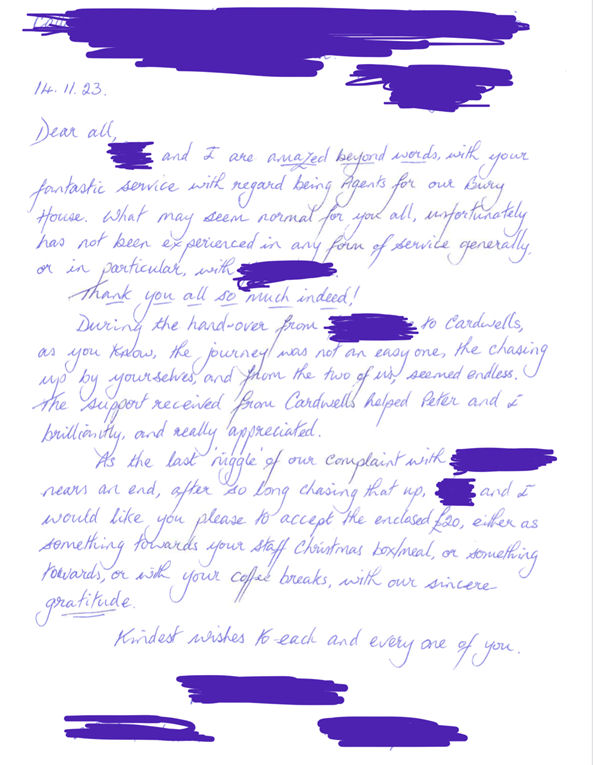 14.11.23.
Dear all,
and I are amazed beyond words, with your
fantastic service with regard being Agents for our Bury
House. What may seem normal for you all, unfortunately
has not been experienced in any form of service generally,
or in particular, with
Thank you all so much indeed!
During the hand-over from to Cardwells,
as you know, the journey was not an easy one, the chasing
up by yourselves, and from the two of us, seemed endless.
The support received from Cardwells helped Peter and I
brilliantly, and really appreciated.
As the last 'niggle' of our complaint with
nears an end, after so long chasing that up, and I
would like you please to accept the enclosed £20, either as
something towards your staff Christmas box/meal, or something
towards, or with your coffee breaks, with our sincere
gratitude.
Kindest wishes to each and every one of you.